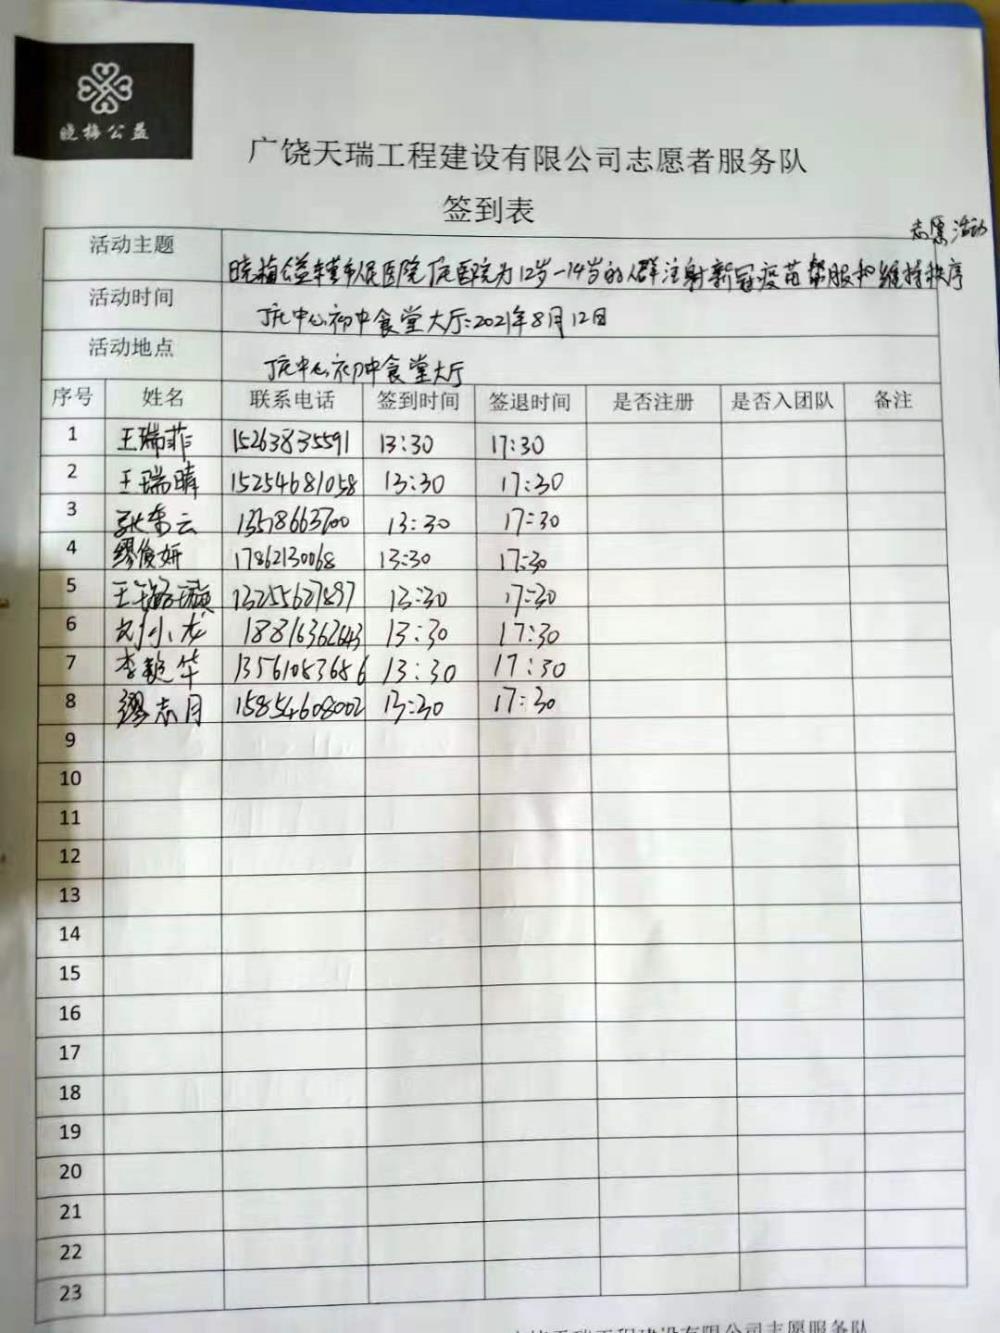 晓梅公益
广饶天瑞工程建设有限公司志愿者服务队
签到表
志愿活动
活动主题 晓梅公益 市人民医院 医院为12岁-14岁的人群注射新冠疫苗 维持秩序
活动时间 丁庄中心初中食堂大厅:2021年8月12日
活动地点 丁庄中心初中食堂大厅
序号 姓名 联系电话 签到时间 签退时间 是否注册 是否入团队 备注
1 王瑞菲 15263835591 13:30 17:30
2 王瑞晴 15254681058 13:30 17:30
3 云 13:30 17:30
4 缪俊妍 17862130068 13:30 17:30
5 王 13255627897 13:30 17:30
6 刘小龙 18816362643 13:30 17:30
7 李 华 13561083686 13:30 17:30
8 缪志月 15854608002 13:30 17:30
9
10
11
12
13
14
15
16
17
18
19
20
21
22
23
广饶天瑞工程建设有限公司志愿服务队